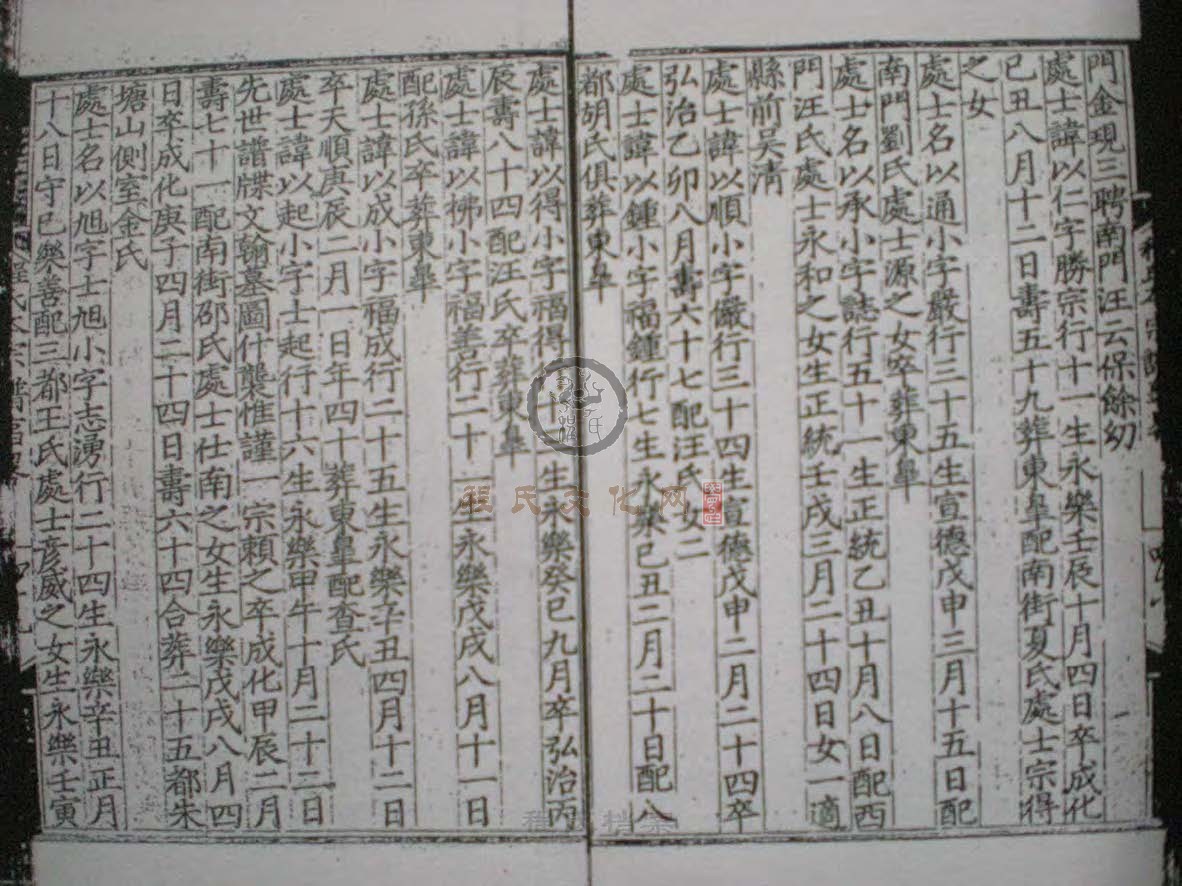 門金現三聘南門汪云保餘幼
處士諱以仁字勝宗行十一生永樂壬辰十月四日卒成化
己丑八月十二日壽五十九葬東皐配南街夏氏處士宗得
之女
處士名以通小字嚴行三十五生宣德戊申三月十五日配
南門劉氏處士源之女卒葬東皐
處士名以承小字誌行五十一生正統乙丑十月八日配西
門汪氏處士永和之女生正統壬戌三月二十四日女一適
縣前吴清
處士諱以順小字儼行三十四生宣德戊申二月二十四卒
弘治乙卯八月壽六十七配汪氏女二
處士諱以鍾小字福鍾行七生永樂己丑二月二十日配八
都胡氏俱葬東皐
處士諱以得小字福得行十二生永樂癸巳九月卒弘治丙
辰壽八十四配汪氏卒葬東皐
處士諱以拂小字福善行二十一生永樂戊戌八月十一日
配孫氏卒葬東皐
處士諱以成小字福成行二十五生永樂辛丑四月十二日
卒天順庚辰二月一日年四十葬東皐配查氏
處士諱以起小字士起行十六生永樂甲午十月二十二日
先世譜牒文翰墓圖什襲惟謹一宗賴之卒成化甲辰二月
壽七十一配南街邵氏處士仕南之女生永樂戊戌八月四
日卒成化庚子四月二十四日壽六十四合葬二十五都朱
塘山側室金氏
處士名以旭字士旭小字志湧行二十四生永樂辛丑正月
十八日守巳樂善配三都王氏處士彦威之女生永樂壬寅
程氏文化网